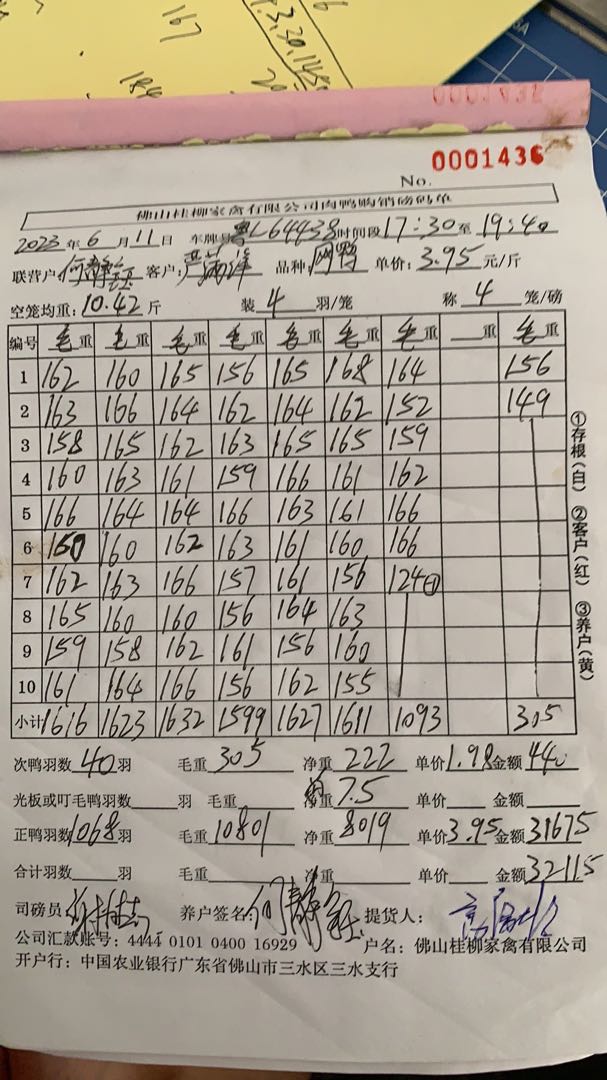 167
184
0001436
No.
佛山桂柳家禽有限公司肉鸭购销磅码单
2023年6月11日 车牌号粤L64438时间段17:30至19:40
联营户:何静 客户: 品种:网鸭 单价:3.95元/斤
空笼均重:10.42斤 装4羽/笼 称4笼/磅
编号 毛重 毛重 毛重 毛重 毛重 毛重 毛重 重 毛重
1 162 160 165 156 165 168 164 156
2 163 166 164 162 164 162 152 149
3 158 165 162 163 165 165 159
4 160 163 161 159 166 161 162
5 166 164 164 166 163 161 166
6 160 160 162 163 161 160 166
7 162 163 166 157 161 156 124
8 165 160 160 156 164 163
9 159 158 162 161 156 160
10 161 164 166 156 162 155
小计 1616 1623 1632 1599 1627 1611 1093 305
①存根(白) ②客户(红) ③养户(黄)
次鸭羽数40羽 毛重305 净重222 单价1.98金额440
光板或叮毛鸭羽数 羽 毛重 净重7.5 单价 金额
正鸭羽数1068羽 毛重10801 净重8019 单价3.95金额31675
合计羽数 羽 毛重 净重 单价 金额32115
司磅员: 养户签名:何静 提货人:
公司汇款账号:4444 0101 0400 16929 户名:佛山桂柳家禽有限公司
开户行:中国农业银行广东省佛山市三水区三水支行